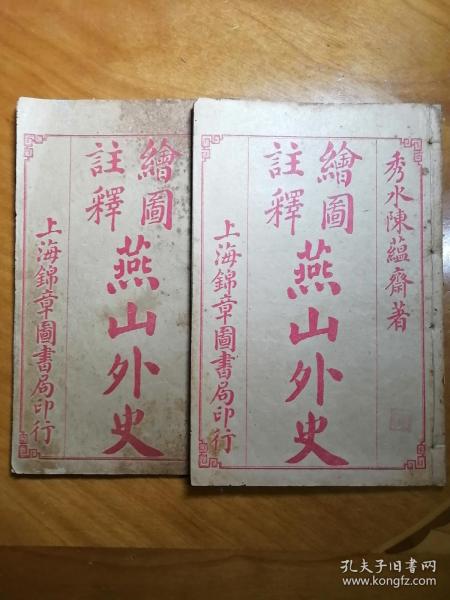 秀水陳蘊齋著
繪圖
註釋
燕山外史
上海錦章圖書局印行
繪圖
註釋
燕山外史
上海錦章圖書局印行
孔夫子旧书网
www.kongfz.com